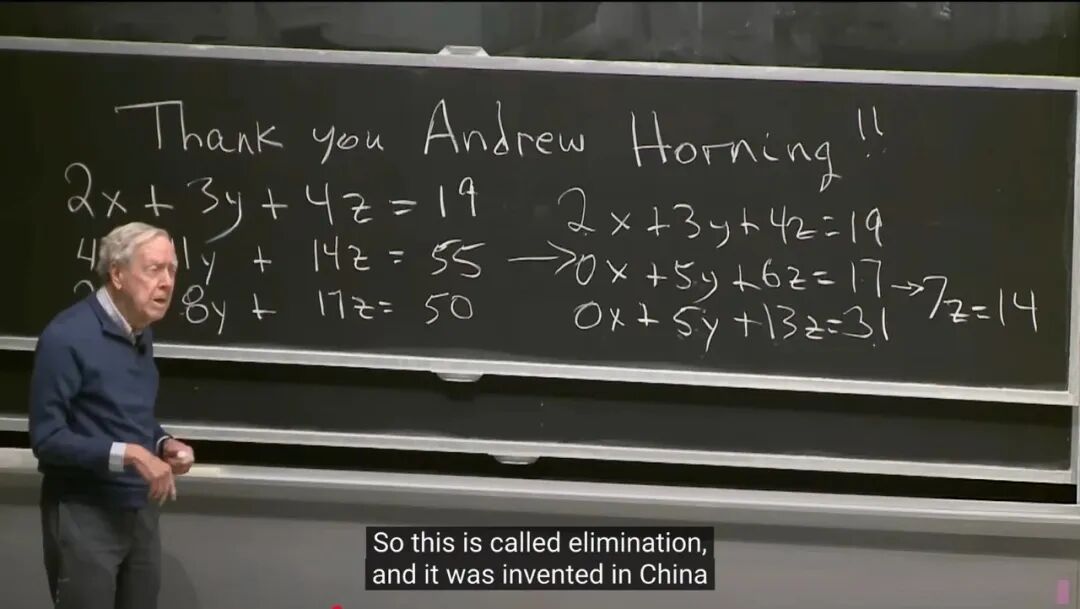 Thank you Andrew Horning !!
2x + 3y + 4z = 19
4 1y + 14z = 55
8y + 17z = 50
2x + 3y + 4z = 19
→ 0x + 5y + 6z = 17
0x + 5y + 13z = 31
→ 7z = 14
So this is called elimination,
and it was invented in China